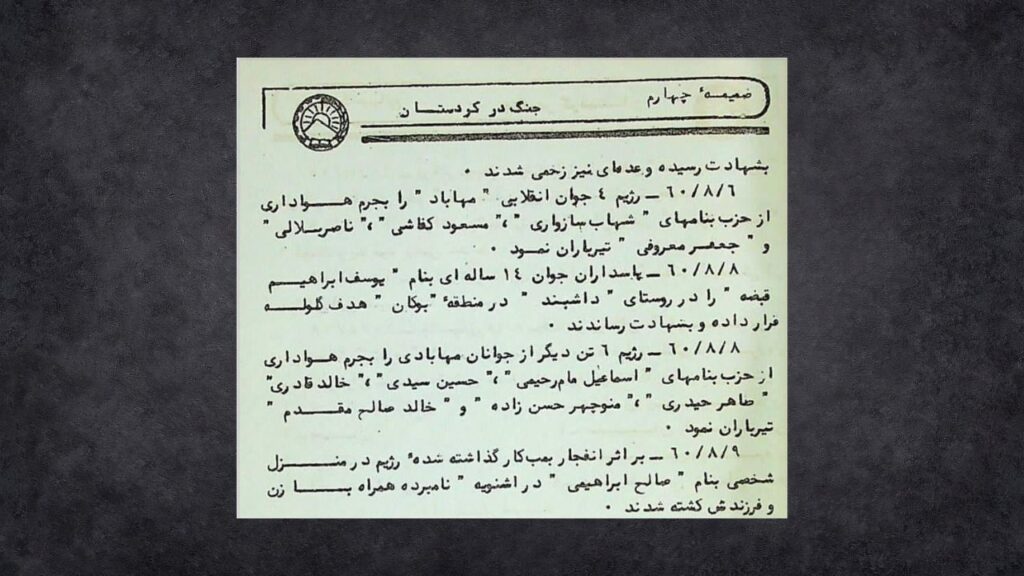 ضمیمهٔ چهارم
جنگ در کردستان
بشهادت رسیده و عده‌ای نیز زخمی شدند .
۶۰/۸/۶ ــ رژیم ٤ جوان انقلابی " مهاباد " را بجرم هـواداری
از حزب بنامهای " شهاب سازواری " ، " مسعود کفاشی " ، " ناصر سلالی "
و " جعفر معروفی " تیرباران نمود .
۶۰/۸/۸ ــ پاسداران جوان ۱٤ ساله ای بنام " یوسف ابراهیـم
قبضه " را در روستای " داشبند " در منطقهٔ " بوکان " هدف گلولـه
قرار داده و بشهادت رساندند .
۶۰/۸/۸ ــ رژیم ۶ تن دیگر از جوانان مهابادی را بجرم هـواداری
از حزب بنامهای " اسماعیل مام رحیمی " ، " حسین سیدی " ، " خالد قادری "
" طاهر حیدری " ، " منوچهر حسن زاده " و " خالد صالح مقـدم "
تیرباران نمود .
۶۰/۸/۹ ــ بر اثر انفجار بمب کار گذاشته شدهٔ رژیم در منـزل
شخصی بنام " صالح ابراهیمی " در اشنویه " نامبرده همراه بـا زن
و فرزندش کشته شدند .